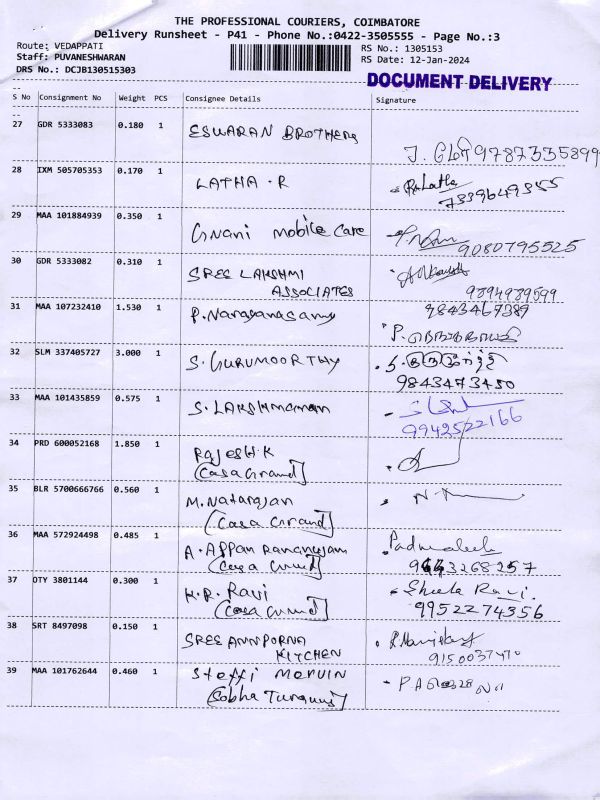 THE PROFESSIONAL COURIERS, COIMBATORE
Delivery Runsheet - P41 - Phone No.:0422-3505555 - Page No.:3
Route: VEDAPPATI
Staff: PUVANESHWARAN
DRS No.: DCJB130515303
RS No.: 1305153
RS Date: 12-Jan-2024
DOCUMENT DELIVERY
S No Consignment No Weight PCS Consignee Details Signature
27 GDR 5333083 0.180 1 ESWARAN BROTHERS
9787335899
28 IXM 505705353 0.170 1 LATHA.R
R. Latha
7339649355
29 MAA 101884939 0.350 1 Gnani Mobile Care
9080795525
30 GDR 5333082 0.310 1 SREE LAKSHMI
ASSOCIATES
9894989599
31 MAA 107232410 1.530 1 P.Narayanasamy
9843467389
32 SLM 337405727 3.000 1 S.GURUMOORTHY
9843473450
33 MAA 101435859 0.575 1 S.LAKSHMANAN
9942522166
34 PRD 600052168 1.850 1 Rajesh.K
(Casa Grand)
35 BLR 5700666766 0.560 1 M.Natarajan
(Casa Grand)
36 MAA 572924498 0.485 1 A.Appan Ramanujam
(Casa Grand)
3268257
37 OTY 3801144 0.300 1 K.R. Ravi
(Casa Grand)
Sheela Ravi.
9952274356
38 SRT 8497098 0.150 1 SREE ANNPORNA
KITCHEN
39 MAA 101762644 0.460 1 Steffi Mervin
(Sobha Turquois)